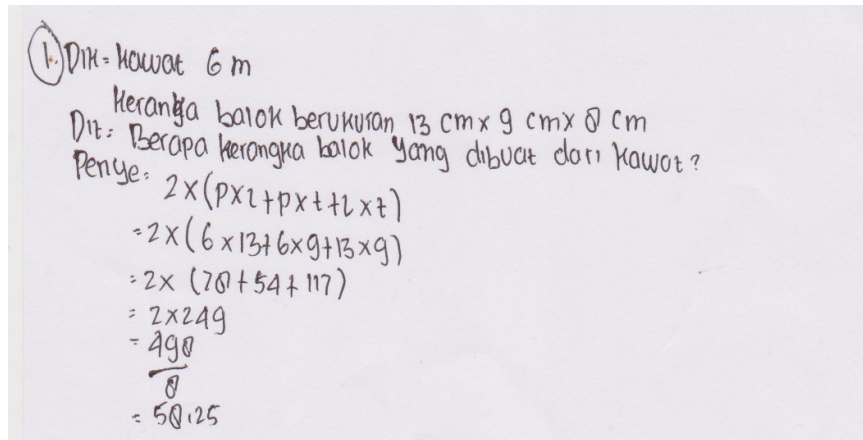 1. Dik = Kawat 6 m
Kerangka balok berukuran 13 cm x 9 cm x 8 cm
Dit: Berapa kerangka balok yang dibuat dari kawat?
Penye:
2x(pxl+pxt+lxt)
=2x(6x13+6x9+13x9)
=2x (78+54+117)
= 2x249
= 498
8
= 58,25